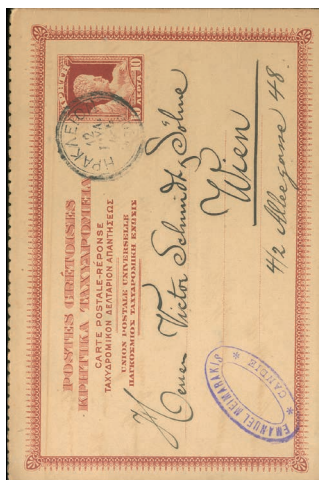 POSTES CRÉTOISES
ΚΡΗΤΙΚΑ ΤΑΧΥΔΡΟΜΕΙΑ
CARTE POSTALE-RÉPONSE
ΤΑΧΥΔΡΟΜΙΚΟΝ ΔΕΛΤΑΡΙΟΝ ΑΠΑΝΤΗΣΕΩΣ
UNION POSTALE UNIVERSELLE
ΠΑΓΚΟΣΜΙΟΣ ΤΑΧΥΔΡΟΜΙΚΗ ΕΝΩΣΙΣ
10 ΛΕΠΤΑ 10
ΗΡΑΚΛΕΙ
Herren Victor Schmidt & Söhne
Wien
4/2 Alleegasse 48.
* EMANUEL MEIMARAKIS *
CANDIE